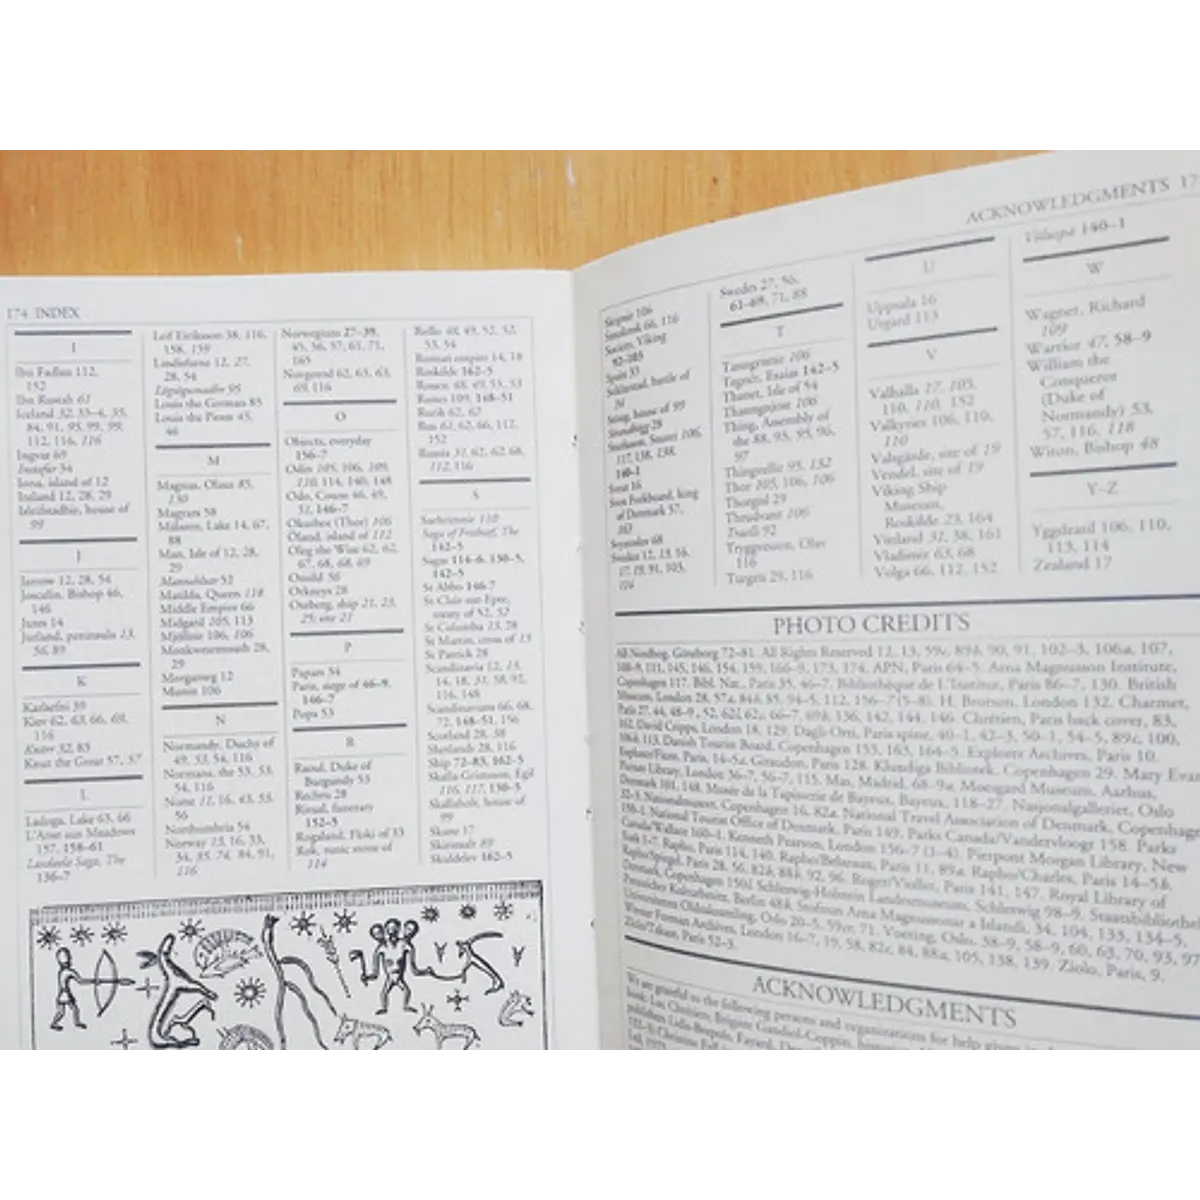 174 INDEX
I
Ibn Fadlan 112,
152
Ibn Rustah 61
Iceland 32, 33-4, 35,
84, 91, 95, 99, 99,
112, 116, 116
Ingvar 69
Iona, island of 12
Ireland 12, 28, 29
99
J
Jarrow 12, 28, 54
Joscelin, Bishop 46,
146
Jutland, peninsula 13,
56, 89
K
Karlsefni 39
Kiev 62, 63, 66, 69,
116
Knarr 32, 83
Knut the Great 57, 57
L
Ladoga, Lake 63, 66
L'Anse aux Meadows
157, 158-61
Laxdaela Saga, The
136-7
Leif Eiriksson 38, 116,
158, 159
Lindisfarne 12, 27,
28, 54
Lögsögumadhr 95
Louis the German 85
Louis the Pious 45,
46
M
Magnus, Olaus 85,
130
Magyars 58
Mälaren, Lake 14, 67,
88
Man, Isle of 12, 28,
29
Matilda, Queen 118
Middle Empire 66
Midgard 105, 113
Mjöllnir 106, 106
Monkwearmouth 28,
29
Morganwg 12
Munin 106
N
Normandy, Duchy of
49, 53, 54, 116
Normans, the 53, 53,
54, 116
Norse 11, 16, 43, 53,
56
Northumbria 54
Norway 13, 16, 33,
34, 85, 74, 84, 91,
116
Norwegians 27-39,
45, 56, 57, 61, 71,
165
Novgorod 62, 63, 63,
69, 116
O
Objects, everyday
156-7
Odin 105, 106, 109,
110, 114, 140, 148
Odo, Count 46, 49,
51, 146-7
Okuthor (Thor) 106
Öland, island of 112
Oleg the Wise 62, 62,
67, 68, 68, 69
Oswald 56
Orkneys 28
Oseberg, ship 21, 23,
25; site 21
P
Papars 34
Paris, siege of 46-9,
146-7
Popa 53
R
Raoul, Duke of
Burgundy 53
Ritual, funerary
152-5
Rogaland, Floki of 33
Rök, runic stone of
114
Rollo 48, 49, 52, 52,
53, 54
Roman empire 14, 18
Roskilde 162-5
Rouen 48, 49, 53, 53
Runes 109, 148-51
Rurik 62, 62
Rus 62, 62, 66, 112,
152
Russia 31, 62, 62, 68,
112, 116
S
Saehrimnir 110
142-5
Sagas 114-6, 130-5,
142-5
St Abbo 146-7
St Clair-sur-Epte,
treaty of 52, 52
St Columba 13, 28
St Martin, cross of 13
St Patrick 28
Scandinavia 12, 13,
14, 18, 31, 58, 92,
116, 148
Scandinavians 66, 68,
72, 148-51, 156
Scotland 28, 38
Shetlands 28, 116
Ship 72-83, 162-5
Skalla-Grimsson, Egil
116, 117, 130-5
Skallaholt, house of
99
Skane 17
Skirimals 89
Skuldelev 162-5
ACKNOWLEDGMENTS 17
Sleipnir 106
Smolensk 66, 116
Society, Viking
92-105
Spain 33
Stiklestad, battle of
34
Stöng, house of 99
Sturluson, Snorri 106,
117, 138, 138,
140-1
Surt 16
Sven Forkbeard, king
of Denmark 57,
163
Svyatoslav 68
Sweden 12, 13, 16,
17, 19, 91, 103,
114
Swedes 27, 56,
61-69, 71, 88
T
Tanngrisnir 106
Tegnér, Esaias 142-5
Thanet, Isle of 54
Thanngnjostr 106
Thing, Assembly of
the 88, 93, 95, 96,
97
Thingvellir 95, 132
Thor 105, 106, 106
Thorgal 29
Thrudvang 106
Truelli 92
Tryggvesson, Olav
116
Turgeis 29, 116
U
Uppsala 16
Utgard 113
V
Valhalla 17, 105,
110, 110, 152
Valkyries 106, 110,
110
Valsgärde, site of 19
Vendel, site of 19
Viking Ship
Museum,
Roskilde 23, 164
Vinland 31, 38, 161
Vladimir 63, 68
Volga 66, 112, 152
Völuspá 140-1
W
Wagner, Richard
109
Warrior 47, 58-9
William the
Conqueror
(Duke of
Normandy) 53,
57, 116, 118
Witon, Bishop 48
Y-Z
Yggdrasil 106, 110,
113, 114
Zealand 17
PHOTO CREDITS
All Nordbog, Göteborg 72-81. All Rights Reserved 12, 13, 59c, 89d, 90, 91, 102-3, 106a, 107,
108-9, 111, 145, 146, 154, 159, 166-9, 173, 174. APN, Paris 64-5. Arna Magnusson Institute,
Copenhagen 117. Bibl. Nat., Paris 35, 46-7. Bibliothèque de L'Institut, Paris 86-7, 130. British
Museum, London 28, 57a, 84d, 85, 94-5, 112, 156-7 (5-8). H. Brorson, London 132. Charmet,
Paris 27, 44, 48-9, 52, 62d, 62c, 66-7, 69d, 136, 142, 144, 146. Chrétien, Paris back cover, 83,
162, David Cripps, London 18, 129. Dagli-Orti, Paris spine, 40-1, 42-3, 50-1, 54-5, 89c, 100,
106d, 113. Danish Tourist Board, Copenhagen 153, 163, 164-5. Explorer Archives, Paris 10.
Explorer/Fiore, Paris, 14-5a. Giraudon, Paris 128. Klundiga Bibliotek, Copenhagen 29. Mary Evan
Picture Library, London 36-7, 56-7, 115. Mas, Madrid, 68-9a. Moesgard Museum, Aarhus,
Denmark 101, 148. Musée de la Tapisserie de Bayeux, Bayeux, 118-27. Nasjonalgalleriet, Oslo
32-3. Nationalmuseet, Copenhagen 16, 82a. National Travel Association of Denmark, Copenhage
158-1. National Tourist Office of Denmark, Paris 149. Parks Canada/Vandervloogt 158. Parks
Canada/Wallace 160-1. Kenneth Pearson, London 156-7 (1-4). Pierpont Morgan Library, New
York 1-7. Rapho, Paris 114, 140. Rapho/Belzeaux, Paris 11, 89a. Rapho/Charles, Paris 14-5b.
Rapho/Spiegel, Paris 28, 56, 82b, 88b, 92, 96. Roger/Viollet, Paris 141, 147. Royal Library of
Denmark, Copenhagen 150d. Schleswig-Holstein Landesmuseum, Schleswig 98-9. Staatsbibliothe
Preussicher Kulturbesitz, Berlin 48b. Stofnun Arna Magnussonar a Islandi, 34, 104, 133, 134-5.
Universitetets Oldsaksamling, Oslo 20-5, 59cr, 71. Voering, Oslo, 38-9, 58-9, 60, 63, 70, 93, 97
Werner Forman Archives, London 16-7, 19, 58, 82c, 84, 88a, 105, 138, 139. Ziolo, Paris, 9.
Ziolo/Takase, Paris 52-3.
ACKNOWLEDGMENTS
We are grateful to the following persons and organizations for help given in